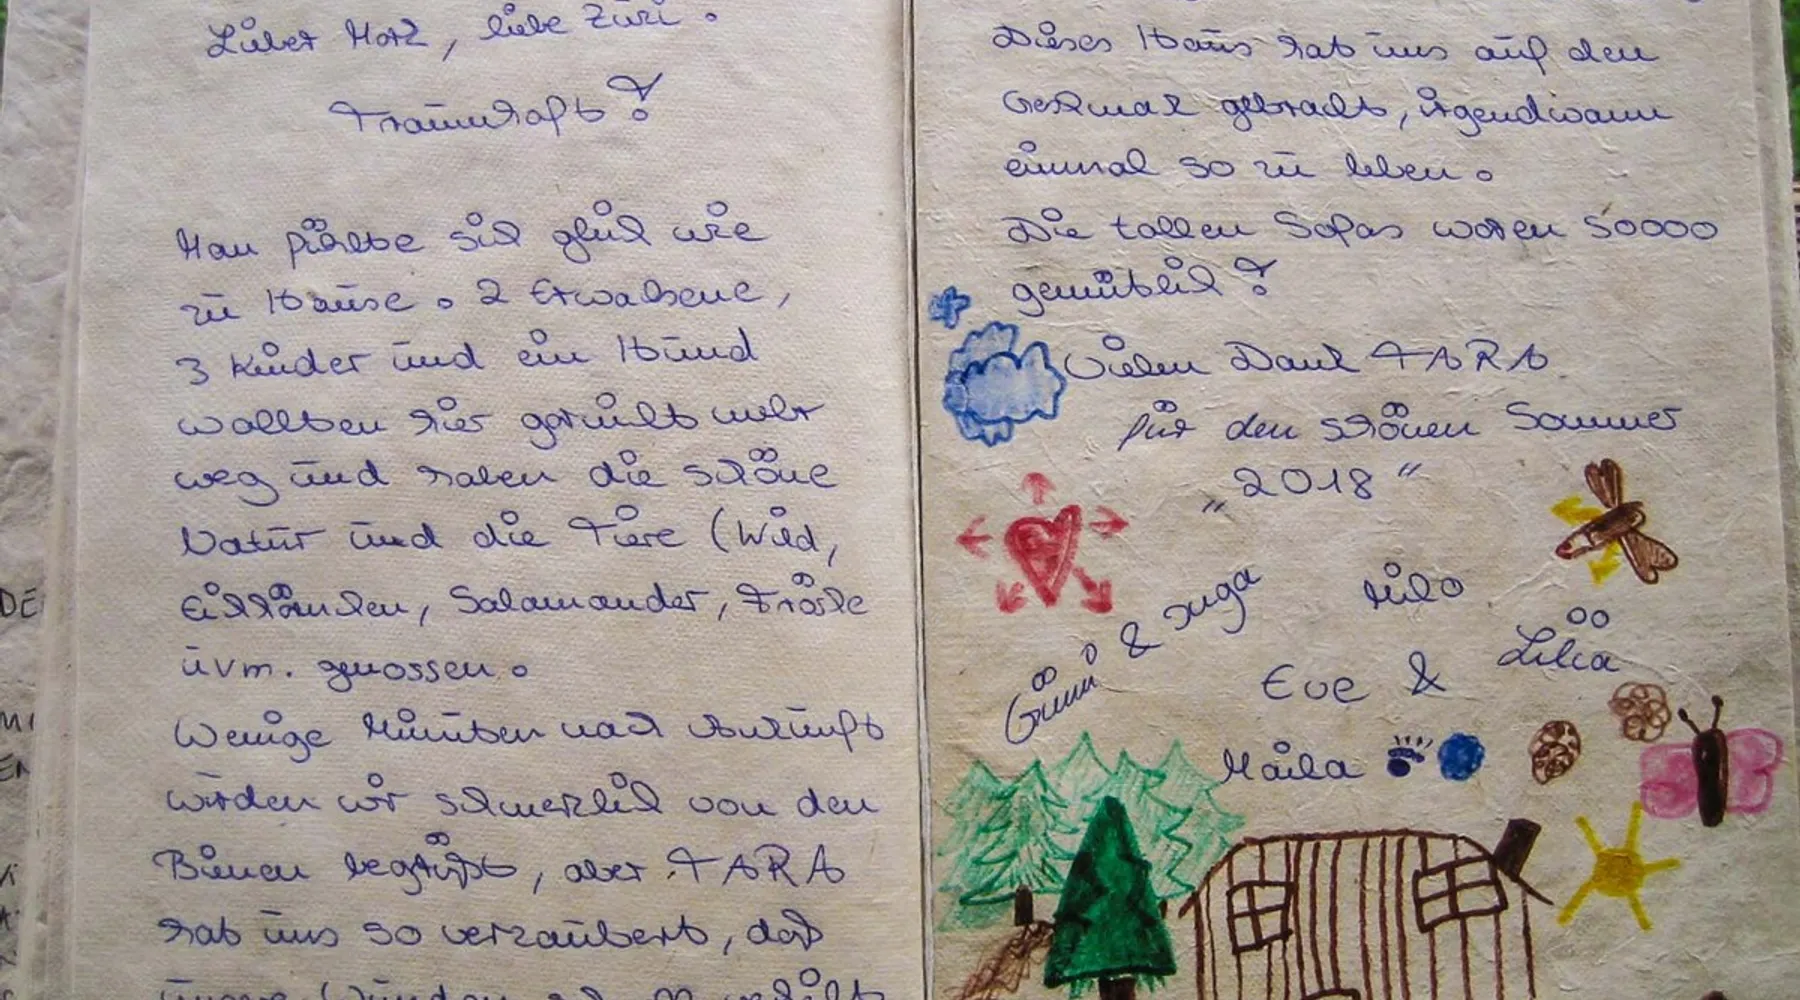 Lieber Moritz, liebe Zuri.
Traumhaft!
Man fühlte sich gleich wie
zu Hause. 2 Erwachsene,
3 Kinder und ein Hund
wollten hier gar nicht mehr
weg und haben die schöne
Natur und die Tiere (Wild,
Eichhörnchen, Salamander, Frösche
uvm. genossen.
Wenige Minuten nach Ankunft
wurden wir schmerzlich von den
Bienen begrüßt, aber TARA
hat uns so verzaubert, daß
unsere Wunden
Dieses Haus hat uns auf den
Geschmack gebracht, irgendwann
einmal so zu leben.
Die tollen Sofas waren 50000
gemütlich!
Vielen Dank TARA
für den schönen Sommer
„2018“
& Inga
Milo
Eve & Lilia
Maila